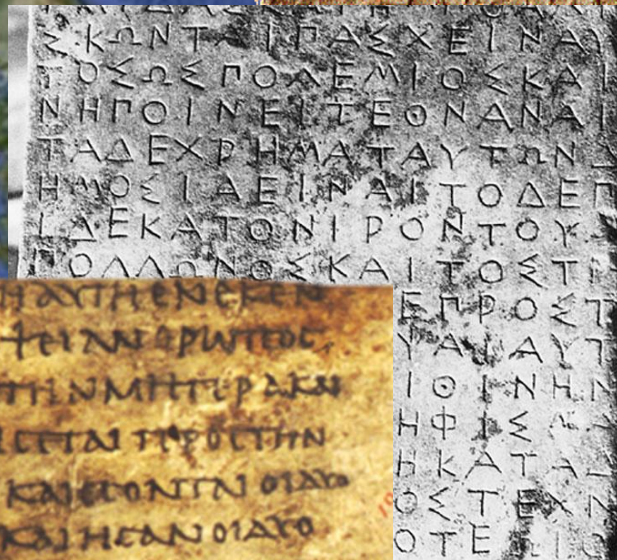 ΚΩΝΤΑΙΠΑΣΧΕΙΝΑΥ
ΤΟΣΩΣΠΟΛΕΜΙΟΣΚΑΙ
ΝΗΠΟΙΝΕΙΤΕΘΝΑΝΑΙ
ΤΑΔΕΧΡΗΜΑΤΑΥΤΩΝΔ
ΗΜΟΣΙΑΕΙΝΑΙΤΟΔΕΠ
ΙΔΕΚΑΤΟΝΙΡΟΝΤΟΥ
ΠΟΛΛΩΝΟΣΚΑΙΤΟΣΤΡ
ΕΠΡΟΣΤ
ΥΑΙΑΥΤ
ΙΟΙΝΗΝ
ΗΦΙΣΜ
ΗΚΑΤΑ
ΟΣΤΕΑΝ
ΟΤΕ
ΑΥΤΗΕΝΕΚΕΝ
ΨΕΙΑΝΘΡΩΠΟϹ
ΤΗΝΜΗΤΕΡΑΚΑΙ
ϹΕΤΑΙΠΡΟϹΤΗΝ
ΚΑΙΕϹΟΝΤΑΙΟΙΔΥΟ
ΚΑΙΗϹΑΝΟΙΔΥΟ